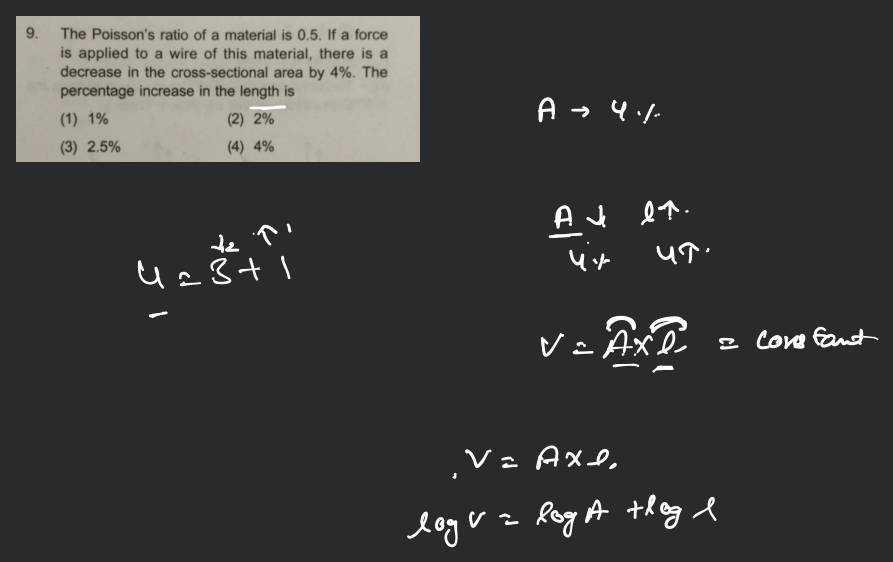 9. The Poisson's ratio of a material is 0.5. If a force
is applied to a wire of this material, there is a
decrease in the cross-sectional area by 4%. The
percentage increase in the length is
(1) 1% (2) 2%
(3) 2.5% (4) 4%
A → 4%
A ↓ l↑.
4% 4↑.
4 = 3 + 1
V = A × l = constant
V = A × l.
log V = log A + log l